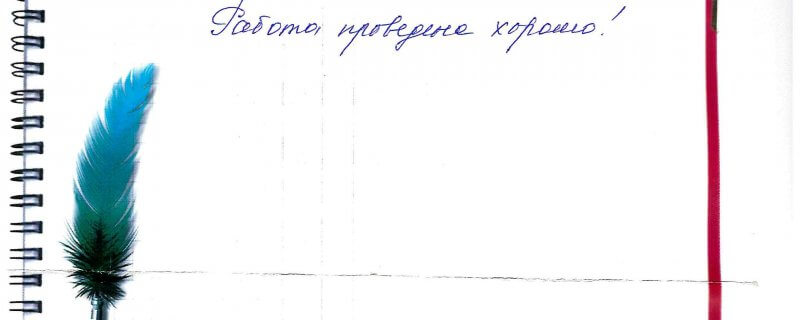 Работа проведена хорошо!